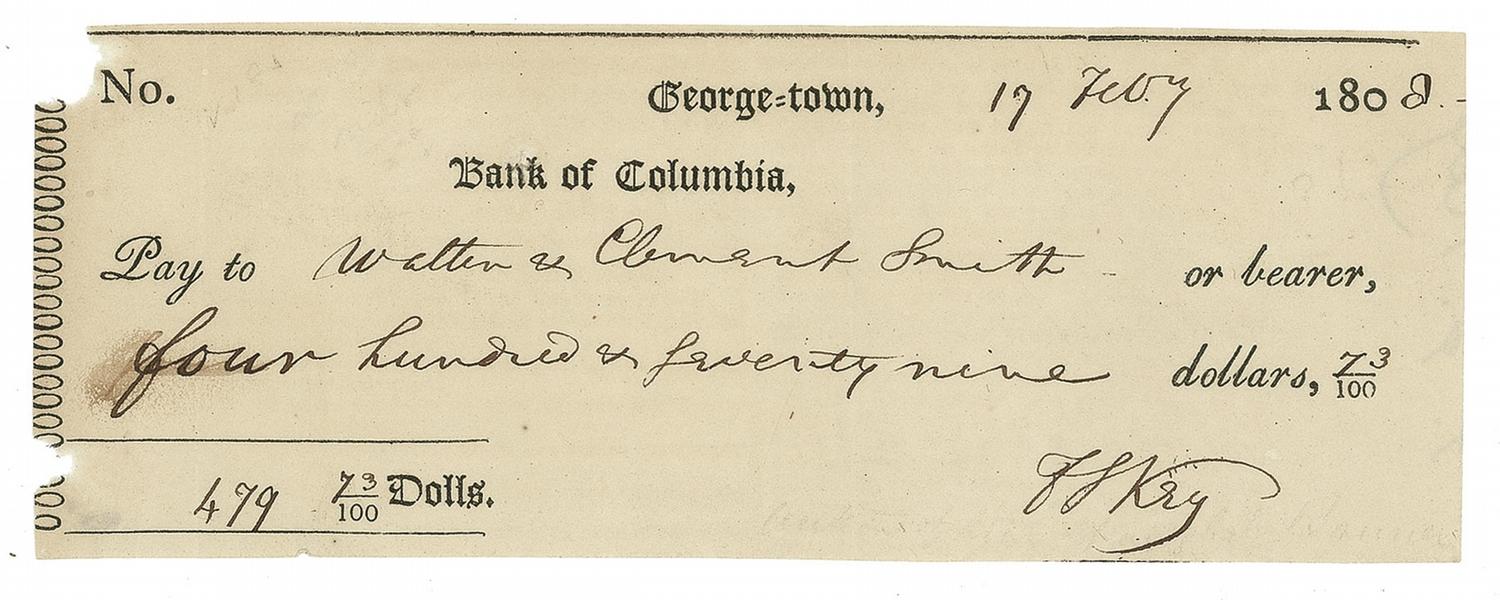 No. George=town, 17 Feb.y 1808.-
Bank of Columbia,
Pay to Walter & Clement Smith - or bearer,
four hundred & seventy nine dollars, 73/100
479 73/100 Dolls.
F S Key